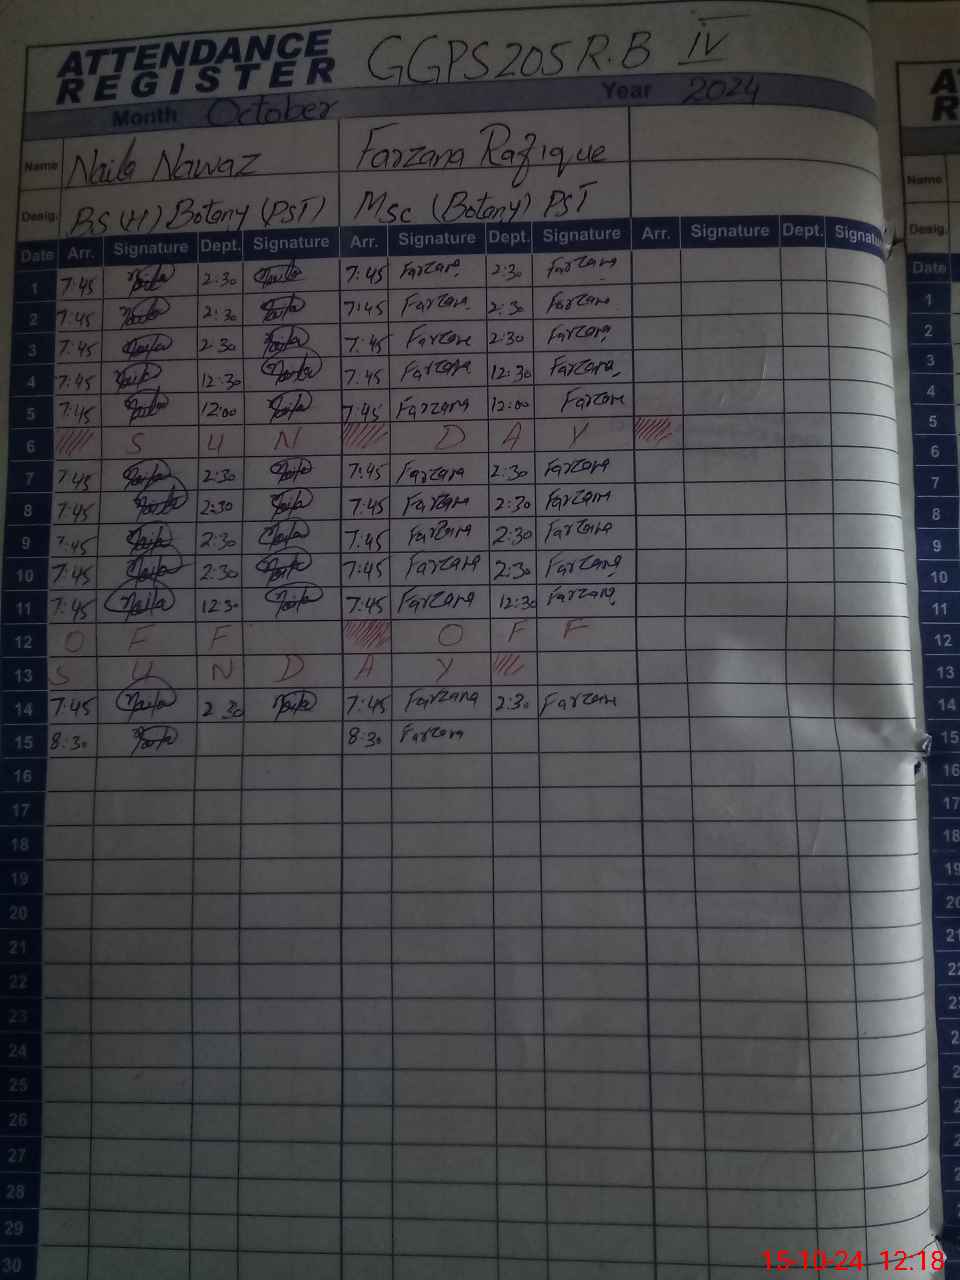 ATTENDANCE REGISTER GGPS 205 R.B IV
Month October Year 2024
Name Naila Nawaz Farzana Rafique
Desig. BS (H) Botany (PST) Msc (Botany) PST
Date Arr. Signature Dept. Signature Arr. Signature Dept. Signature Arr. Signature Dept. Signature
1 7:45 Naila 2:30 Naila 7:45 Farzana 2:30 Farzana
2 7:45 Naila 2:30 Naila 7:45 Farzana 2:30 Farzana
3 7:45 Naila 2:30 Naila 7:45 Farzana 2:30 Farzana
4 7:45 Naila 12:30 Naila 7:45 Farzana 12:30 Farzana
5 7:45 Naila 12:00 Naila 7:45 Farzana 12:00 Farzana
6 S U N D A Y
7 7:45 Naila 2:30 Naila 7:45 Farzana 2:30 Farzana
8 7:45 Naila 2:30 Naila 7:45 Farzana 2:30 Farzana
9 7:45 Naila 2:30 Naila 7:45 Farzana 2:30 Farzana
10 7:45 Naila 2:30 Naila 7:45 Farzana 2:30 Farzana
11 7:45 Naila 12:30 Naila 7:45 Farzana 12:30 Farzana
12 O F F O F F
13 S U N D A Y
14 7:45 Naila 2:30 Naila 7:45 Farzana 2:30 Farzana
15 8:30 Naila 8:30 Farzana
16
17
18
19
20
21
22
23
24
25
26
27
28
29
30
Name
Desig.
Date
1
2
3
4
5
6
7
8
9
10
11
12
13
14
15
16
17
18
19
20
21
22
15-10-24 12:18